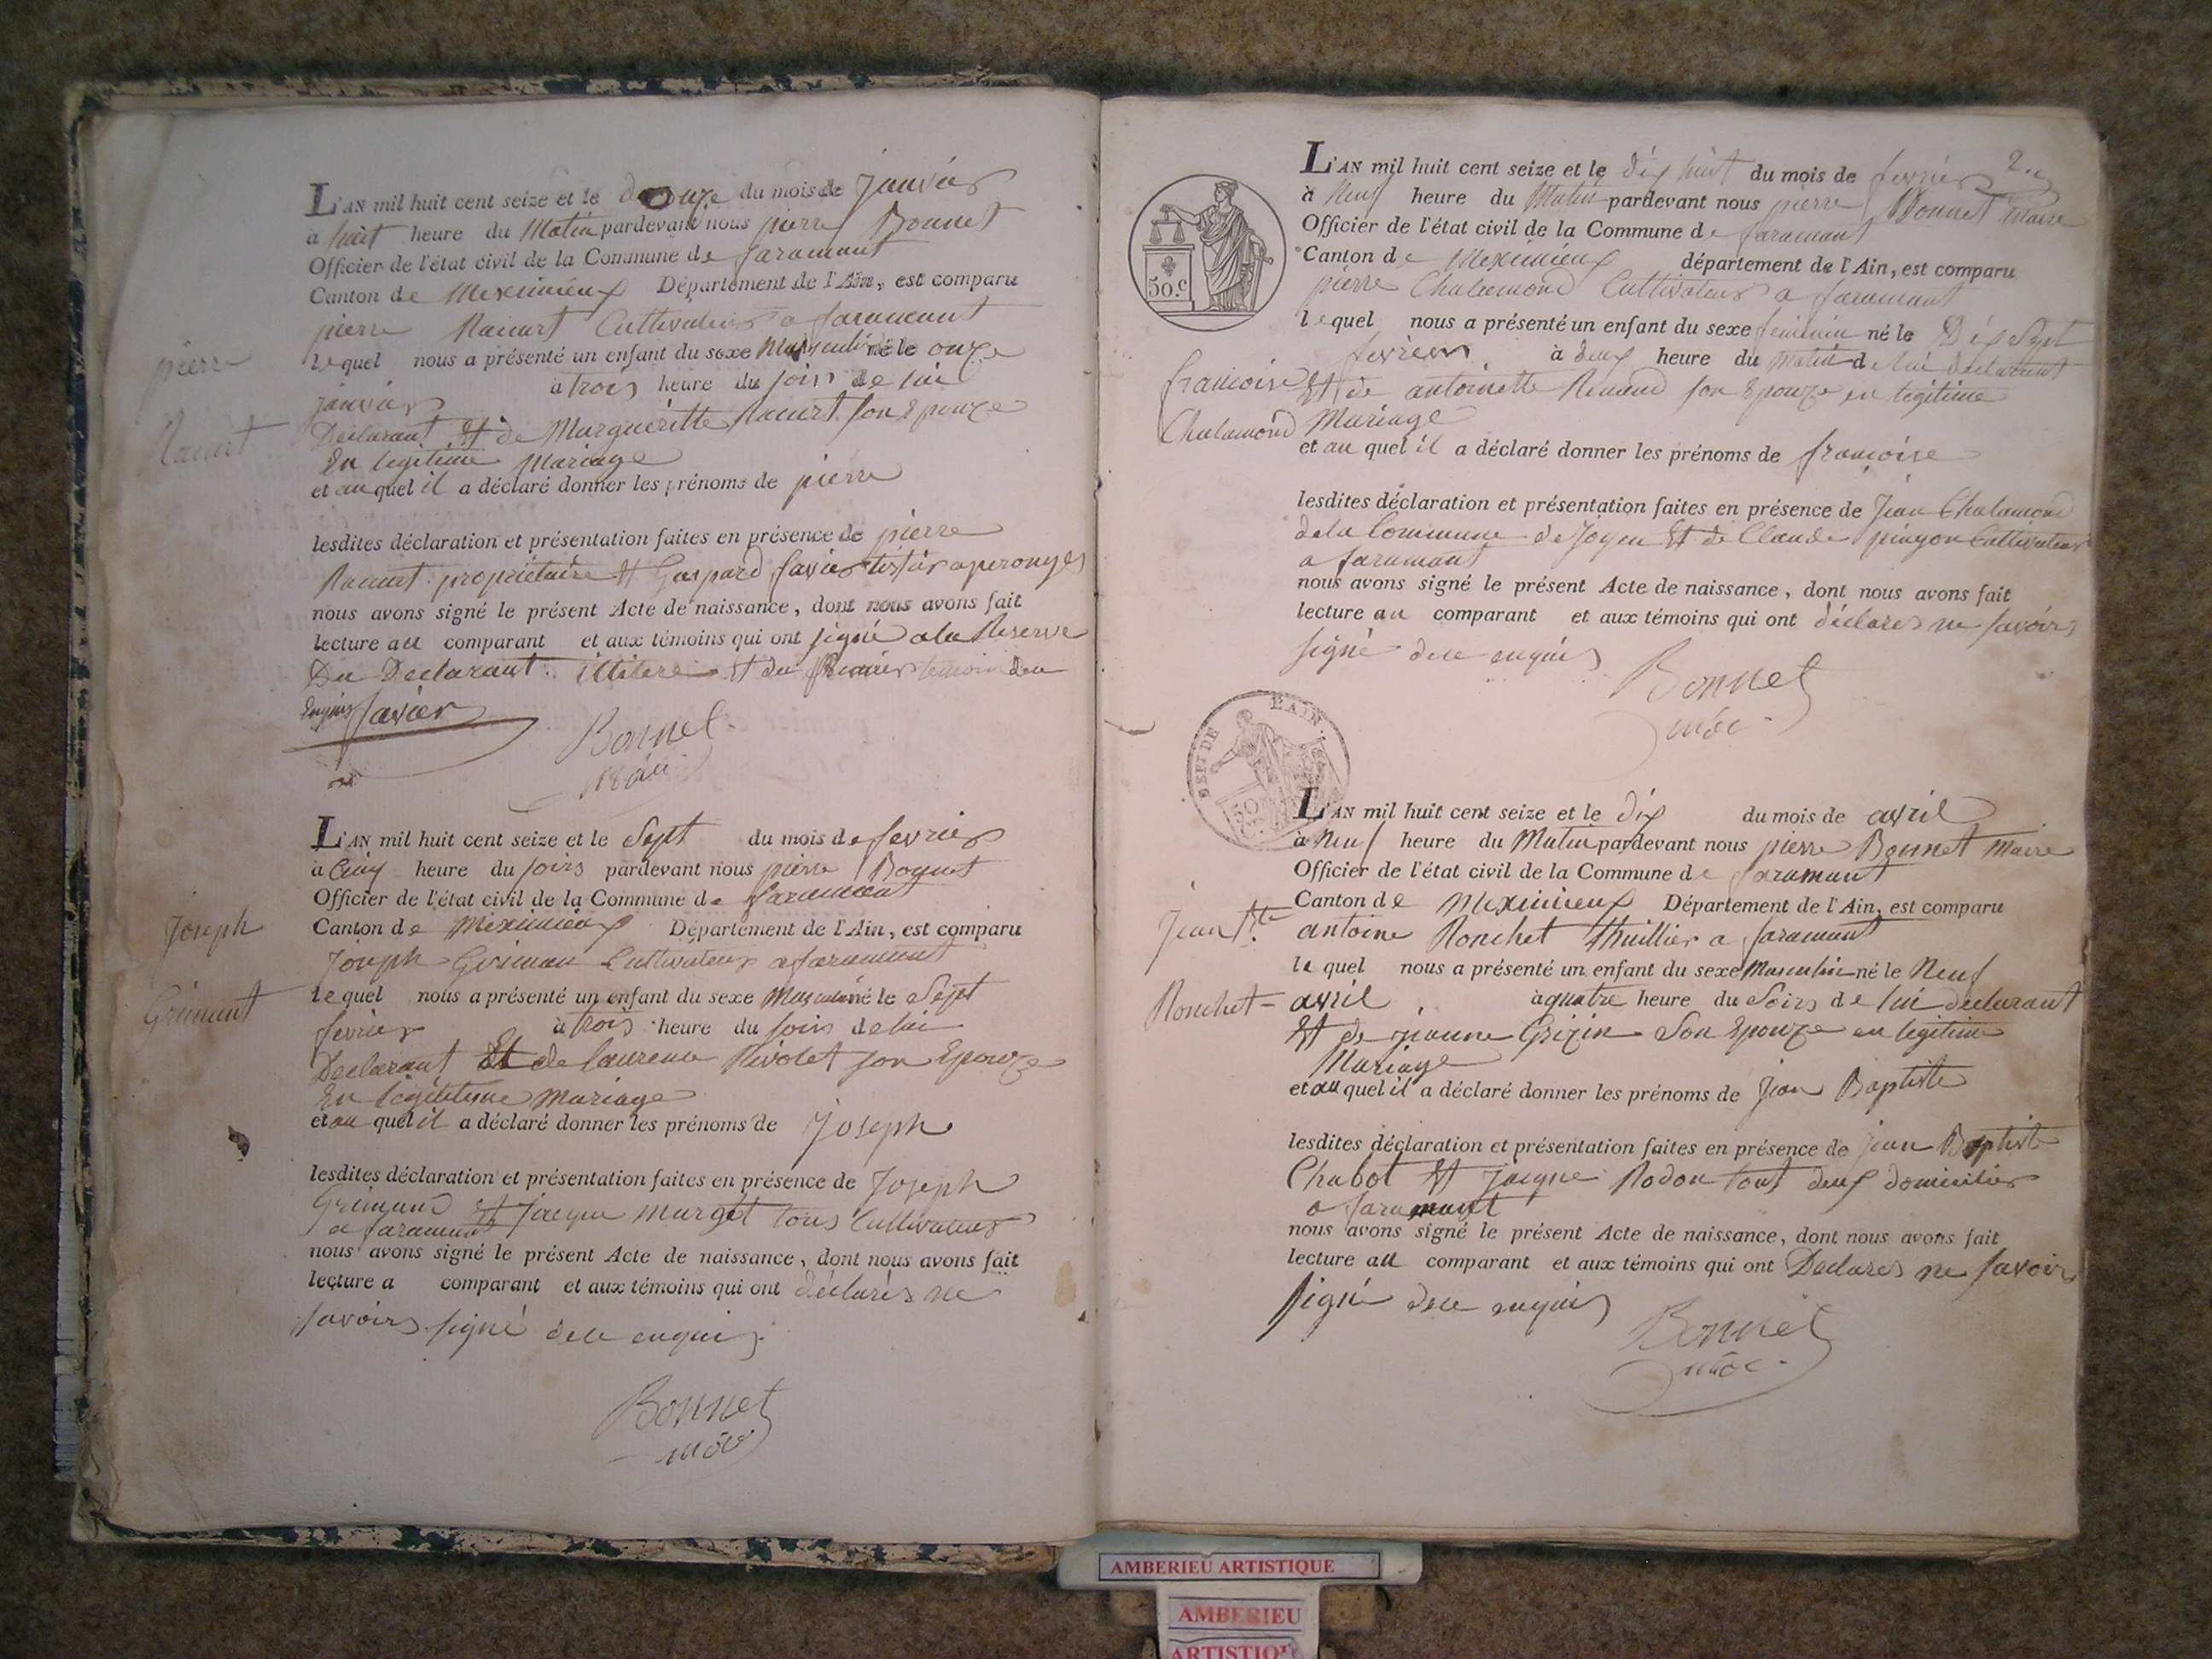 L'AN mil huit cent seize et le douze du mois de janvier
a huit heure du Matin pardevant nous pierre Bonnet
Officier de l'état civil de la Commune de faramant
Canton de Meximieux Département de l'Ain, est comparu
pierre Cultivateur a faramant
lequel nous a présenté un enfant du sexe Masculin né le onze
janvier à trois heure du soir de lui
pierre
Declarant Et de Margueritte son Epouze
En legitime Mariage
et au quel il a déclaré donner les prénoms de pierre
lesdites déclaration et présentation faites en présence de pierre
propriétaire Et Gaspard favier tissier a peronges
nous avons signé le présent Acte de naissance, dont nous avons fait
lecture au comparant et aux témoins qui ont signé a la Reserve
Du Declarant illitere Et du premier temoin de ce
Enquis favier
Bonnet
L'AN mil huit cent seize et le Sept du mois de fevrier
à Cinq heure du soirs pardevant nous pierre Bonnet
Officier de l'état civil de la Commune de faramant
Joseph
Canton de Meximieux Département de l'Ain, est comparu
Joseph Cultivateur a faramant
Grimant
lequel nous a présenté un enfant du sexe Masculin né le Sept
fevrier à trois heure du soir de lui
Declarant Et de laurence Rivolet son Epouze
En legititime Mariage
et au quel il a déclaré donner les prénoms de Joseph
lesdites déclaration et présentation faites en présence de Joseph
Grimand et Jacque Murget tous Cultivateurs
a faramant
nous avons signé le présent Acte de naissance, dont nous avons fait
lecture a comparant et aux témoins qui ont déclarés ne
savoirs signé de ce enquis
Bonnet
2
L'AN mil huit cent seize et le dix huit du mois de fevrier
à Neuf heure du Matin pardevant nous pierre Bonnet Maire
Officier de l'état civil de la Commune de faramant
Canton de Meximieux département de l'Ain, est comparu
50.c
pierre Chalamond Cultivateur a faramant
lequel nous a présenté un enfant du sexe feminin né le Dix Sept
fevrier à deux heure du matin de lui declarant
francoise
Et de antoinette Renand son Epouze en legitime
Chalamond
Mariage
et au quel il a déclaré donner les prénoms de francoise
lesdites déclaration et présentation faites en présence de Jean Chalamond
de la Commune de Joyeu Et de Claude pingon Cultivateur
a faramant
nous avons signé le présent Acte de naissance, dont nous avons fait
lecture au comparant et aux témoins qui ont déclarés ne savoirs
signé de ce enquis
Bonnet
L'AN mil huit cent seize et le dix du mois de avril
à Neuf heure du Matin pardevant nous pierre Bonnet Maire
Officier de l'état civil de la Commune de faramant
Canton de Meximieux Département de l'Ain, est comparu
Jean Bte
antoine Ronchet thuillier a faramant
le quel nous a présenté un enfant du sexe Masculin né le Neuf
Ronchet
avril à quatre heure du Soirs de lui declarant
Et de jeanne Grizin Son Epouze en legitime
Mariage
et au quel il a déclaré donner les prénoms de Jean Baptiste
lesdites déclaration et présentation faites en présence de jean Baptiste
Chabot Et jacque Rodon tout deux domicilier
a faramant
nous avons signé le présent Acte de naissance, dont nous avons fait
lecture au comparant et aux témoins qui ont Declares ne savoirs
signé de ce enquis
Bonnet
AMBERIEU ARTISTIQUE
AMBERIEU